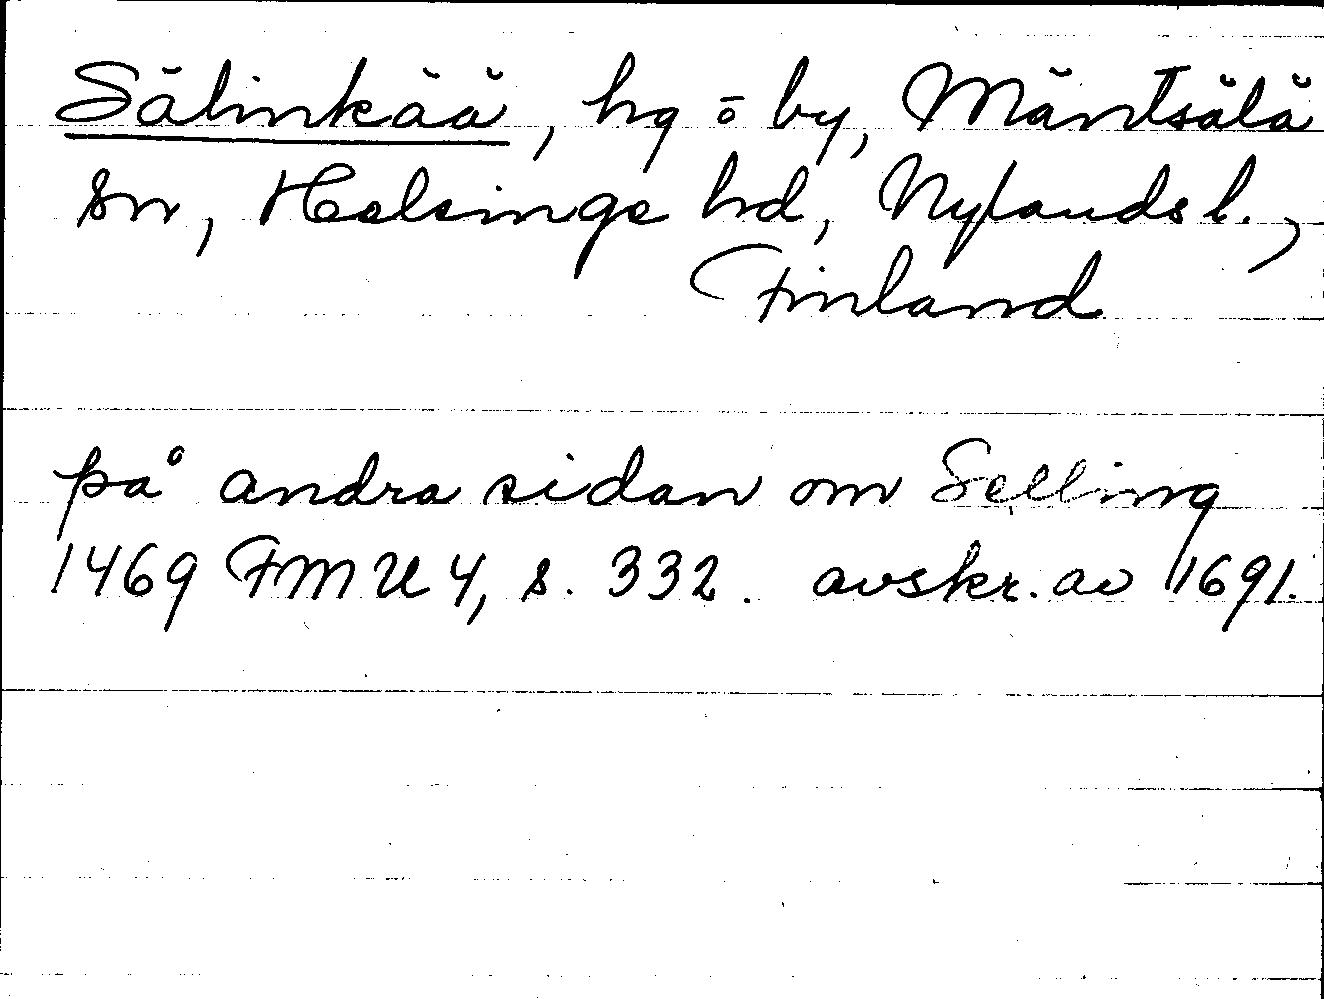 Sälinkää, hg ō by, Mäntsälä
sn, Helsinge hd, Nylands l.,
Finland
på andra sidan om Selling
1469 FMU 4, s. 332. avskr. av 1691.